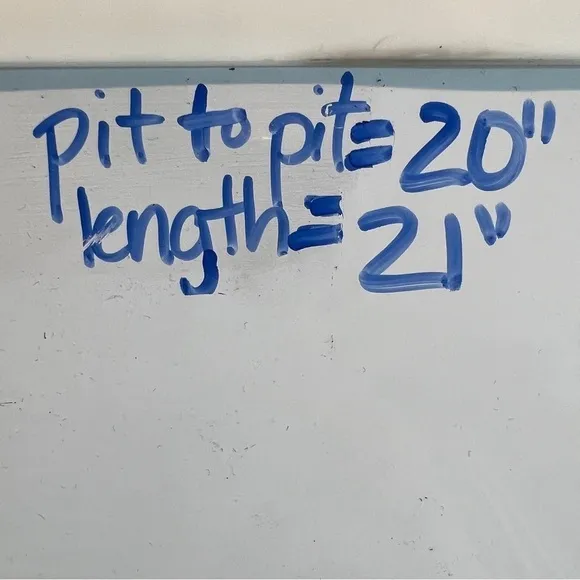 pit to pit = 20"
length = 21"